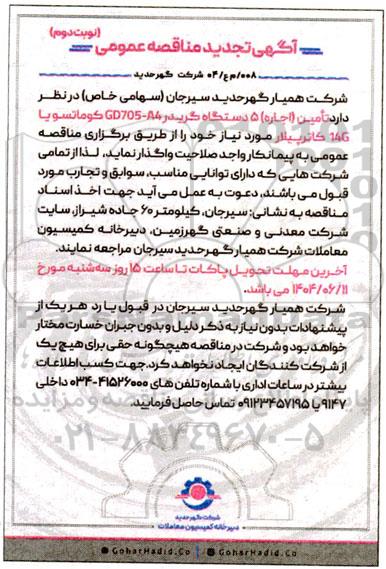 (نوبت دوم)
آگهی تجدید مناقصه عمومی
۰۰۸/م ع/۰۴ شرکت گهرحدید
شرکت همیار گهرحدید سیرجان (سهامی خاص) در نظر
دارد تأمین (اجاره) ۵ دستگاه گریدر GD705-A4 کوماتسو یا
14G کاترپیلار مورد نیاز خود را از طریق برگزاری مناقصه
عمومی به پیمانکار واجد صلاحیت واگذار نماید، لذا از تمامی
شرکت هایی که دارای توانایی مناسب، سوابق و تجارب مورد
قبول می باشند، دعوت به عمل می آید جهت اخذ اسناد
مناقصه به نشانی: سیرجان، کیلومتر ۶۰ جاده شیراز، سایت
شرکت معدنی و صنعتی گهرزمین، دبیرخانه کمیسیون
معاملات شرکت همیار گهرحدید سیرجان مراجعه نمایند.
آخرین مهلت تحویل پاکات تا ساعت ۱۵ روز سه‌شنبه مورخ
۱۴۰۴/۰۶/۱۱ می باشد.
شرکت همیار گهرحدید سیرجان در قبول یا رد هر یک از
پیشنهادات بدون نیاز به ذکر دلیل و بدون جبران خسارت مختار
خواهد بود و شرکت در مناقصه هیچگونه حقی برای هیچ یک
از شرکت کنندگان ایجاد نخواهد کرد. جهت کسب اطلاعات
بیشتر در ساعات اداری با شماره تلفن های ۴۱۵۲۶۰۰۰-۰۳۴ داخلی
۹۱۴۷ یا ۰۹۱۲۳۴۵۷۱۹۵ تماس حاصل فرمایید.
۰۲۱-۸۸۳۴۹۶۷۰-۵
شرکت گهرحدید
دبیرخانه کمیسیون معاملات
GoharHadid.Co | GoharHadid.Co